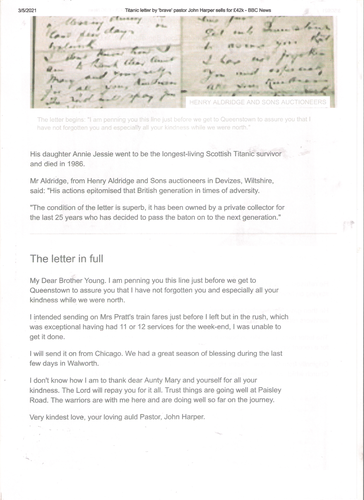 3/5/2021
Titanic letter by 'brave' pastor John Harper sells for £42k - BBC News
last few days in
Walworth.
I don't know how I
am to thank dear Aunty
Mary and yourself
for all your kindness
The Lord will repay you
get into Queenstown
to assure you that
I have not forgotten
you and especially
all your kindness
HENRY ALDRIDGE AND SONS AUCTIONEERS
The letter begins: "I am penning you this line just before we get to Queenstown to assure you that I
have not forgotten you and especially all your kindness while we were north."
His daughter Annie Jessie went to be the longest-living Scottish Titanic survivor
and died in 1986.
Mr Aldridge, from Henry Aldridge and Sons auctioneers in Devizes, Wiltshire,
said: "His actions epitomised that British generation in times of adversity.
"The condition of the letter is superb, it has been owned by a private collector for
the last 25 years who has decided to pass the baton on to the next generation."
The letter in full
My Dear Brother Young. I am penning you this line just before we get to
Queenstown to assure you that I have not forgotten you and especially all your
kindness while we were north.
I intended sending on Mrs Pratt's train fares just before I left but in the rush, which
was exceptional having had 11 or 12 services for the week-end, I was unable to
get it done.
I will send it on from Chicago. We had a great season of blessing during the last
few days in Walworth.
I don't know how I am to thank dear Aunty Mary and yourself for all your
kindness. The Lord will repay you for it all. Trust things are going well at Paisley
Road. The warriors are with me here and are doing well so far on the journey.
Very kindest love, your loving auld Pastor, John Harper.